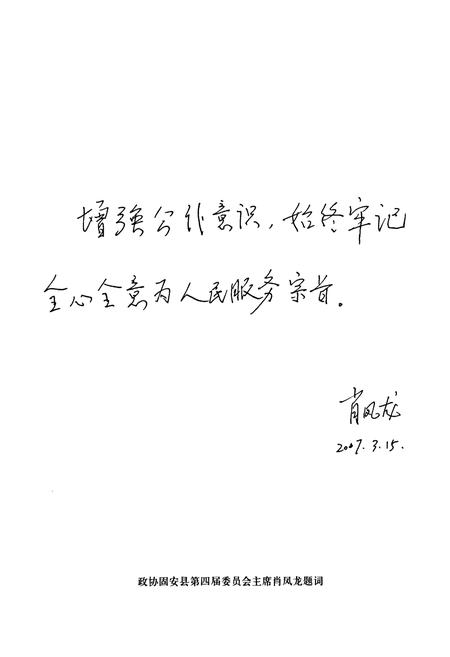 增强公仆意识，始终牢记
全心全意为人民服务宗旨。
肖凤龙
2007.3.15.
政协固安县第四届委员会主席肖凤龙题词